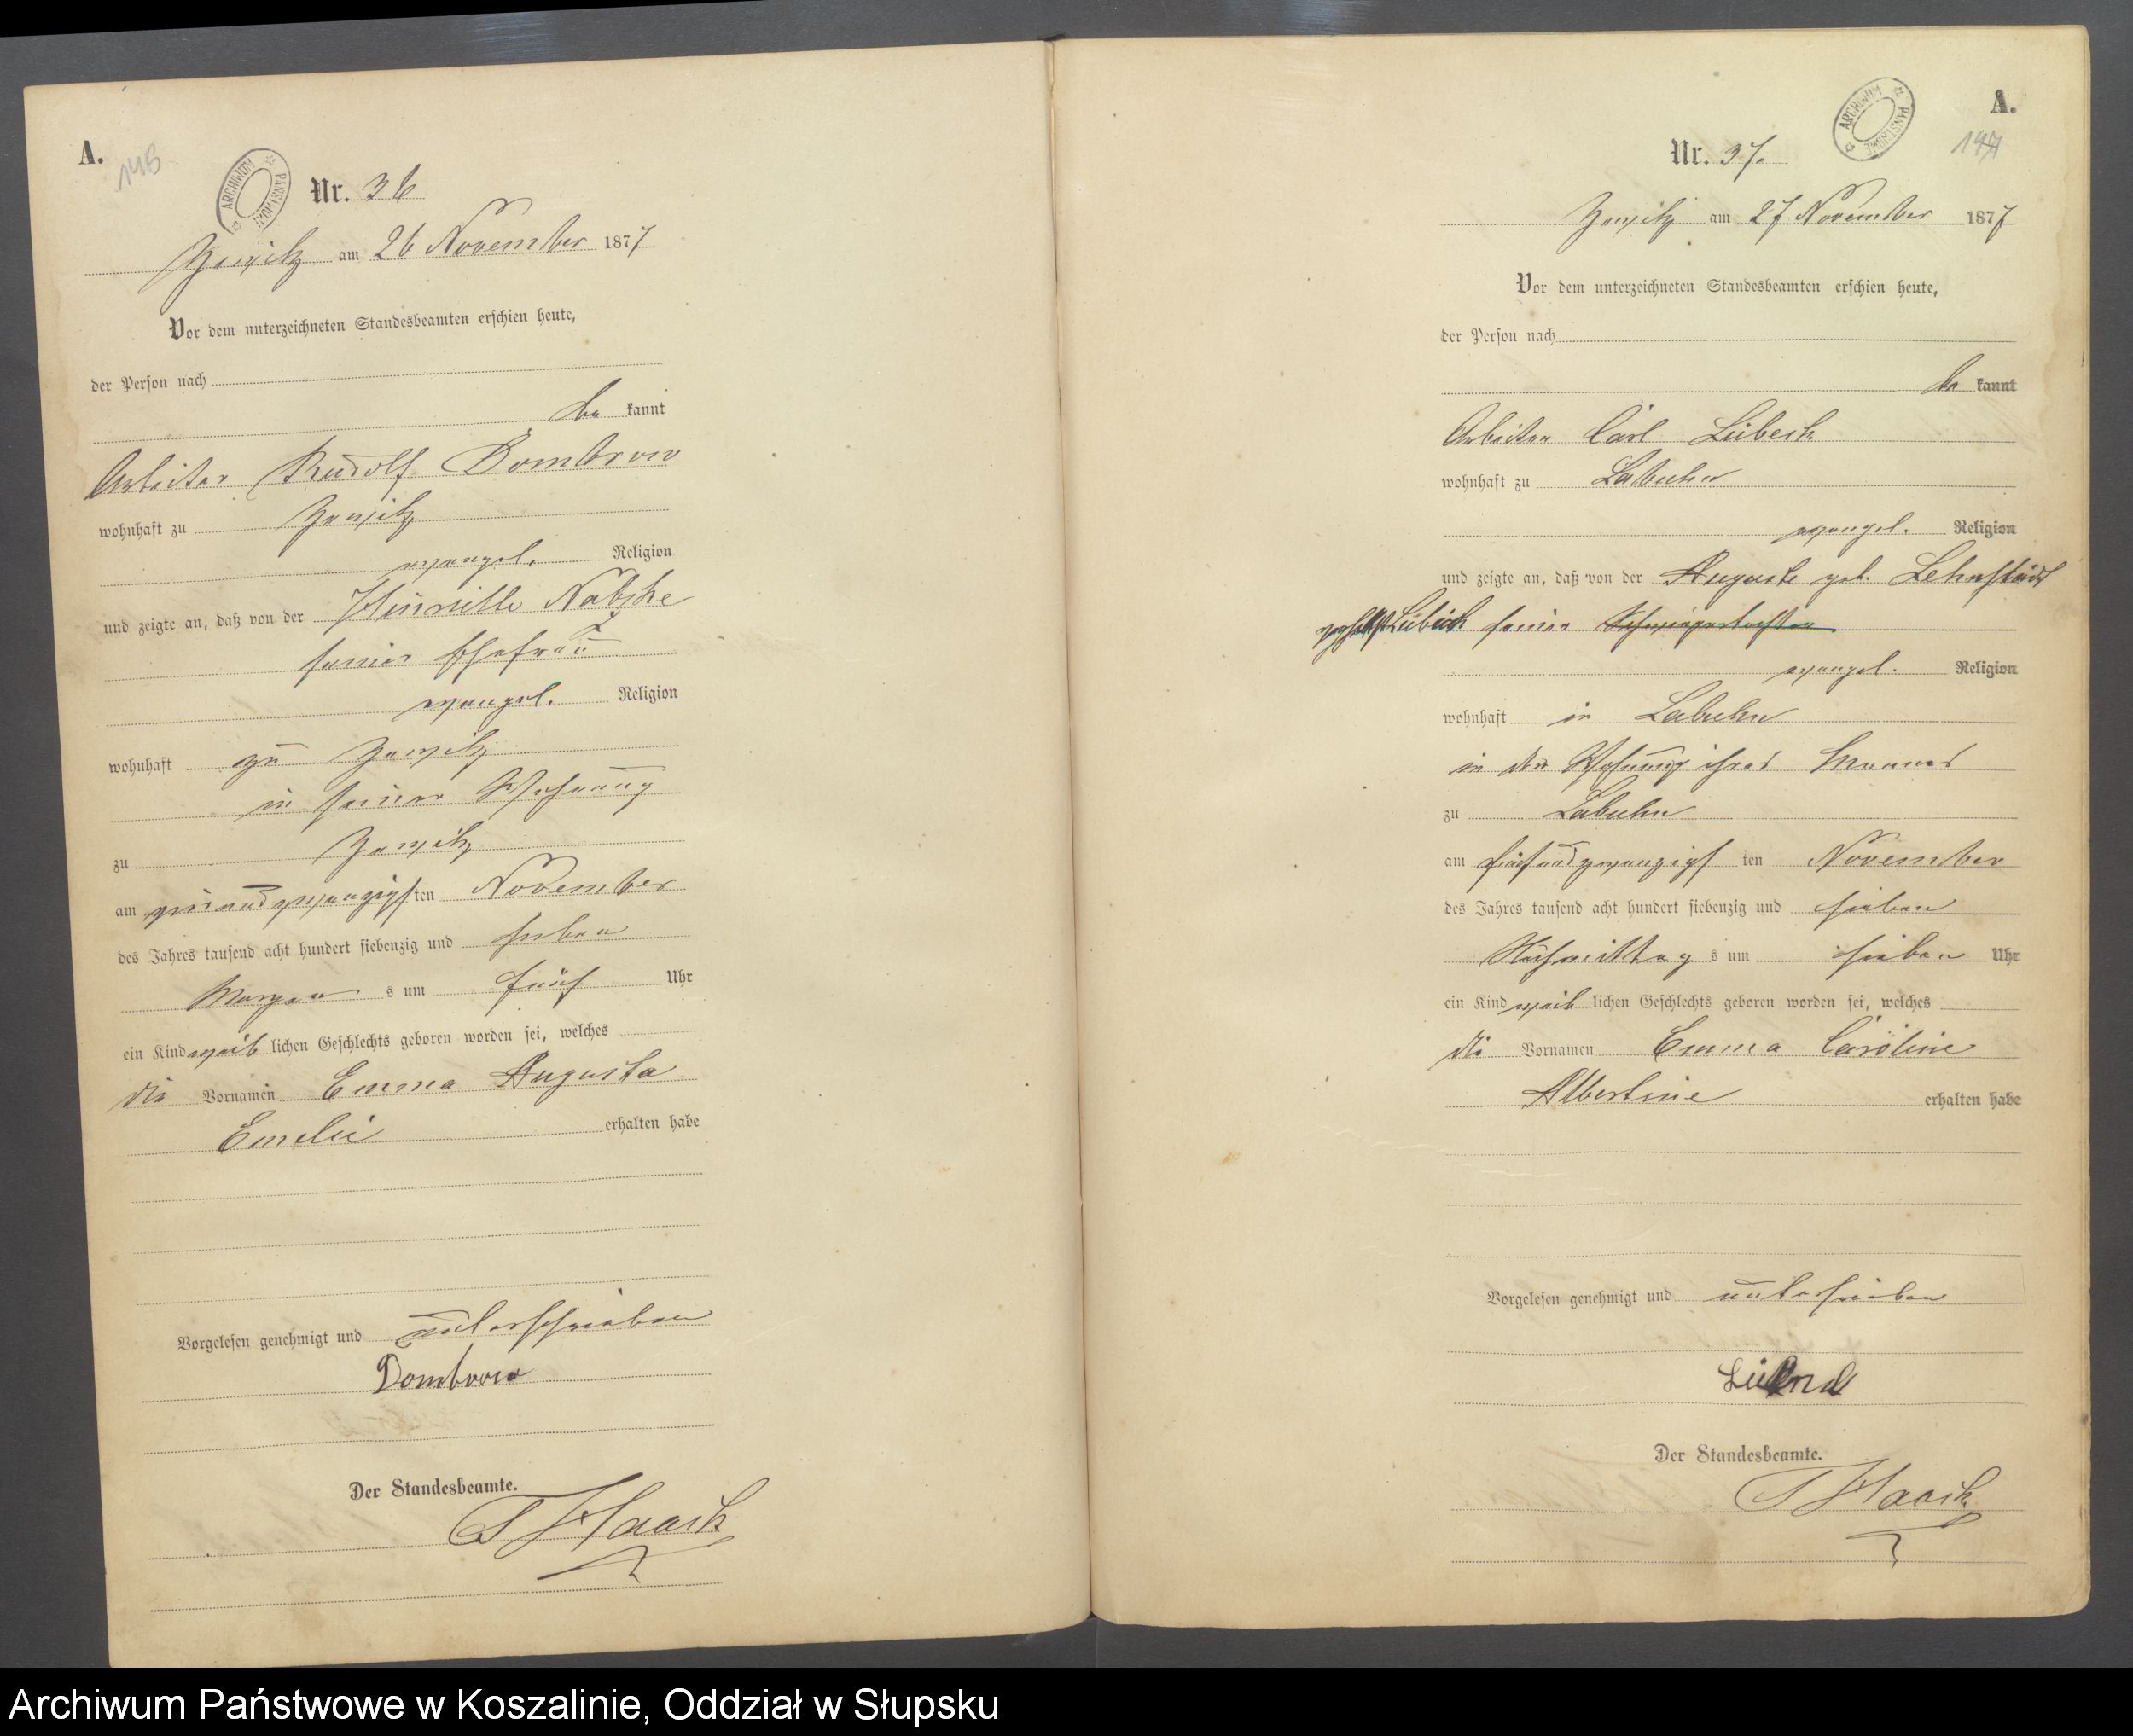 A.
146
ARCHIWUM PAŃSTWOWE
Nr. 36
am 26 November 1877
Vor dem unterzeichneten Standesbeamten erschien heute,
der Person nach
be kannt
Arbeiter Rudolf Dombrow
wohnhaft zu
evangel. Religion
und zeigte an, daß von der
seiner Ehefrau
evangel. Religion
wohnhaft zu
in seiner Wohnung
zu
am ten November
des Jahres tausend acht hundert siebenzig und sieben
Morgen s um fünf Uhr
ein Kind weib lichen Geschlechts geboren worden sei, welches
die Vornamen Emma Auguste
Emelie erhalten habe
Vorgelesen genehmigt und unterschrieben
Dombrow
Der Standesbeamte.
Haack
A.
ARCHIWUM PAŃSTWOWE
Nr. 37.
am 27 November 1877
Vor dem unterzeichneten Standesbeamten erschien heute,
der Person nach
be kannt
Arbeiter Carl Lübeck
wohnhaft zu Labuhn
evangel. Religion
und zeigte an, daß von der Auguste geb. Lehnstädt
Lübeck seiner Schwiegertochter
evangel. Religion
wohnhaft in Labuhn
in der Wohnung ihres Mannes
zu Labuhn
am fünfundzwanzigs ten November
des Jahres tausend acht hundert siebenzig und sieben
Nachmittag s um sieben Uhr
ein Kind weib lichen Geschlechts geboren worden sei, welches
die Vornamen Emma Caroline
Albertine erhalten habe
Vorgelesen genehmigt und unterschrieben
Der Standesbeamte.
Haack
Archiwum Państwowe w Koszalinie, Oddział w Słupsku